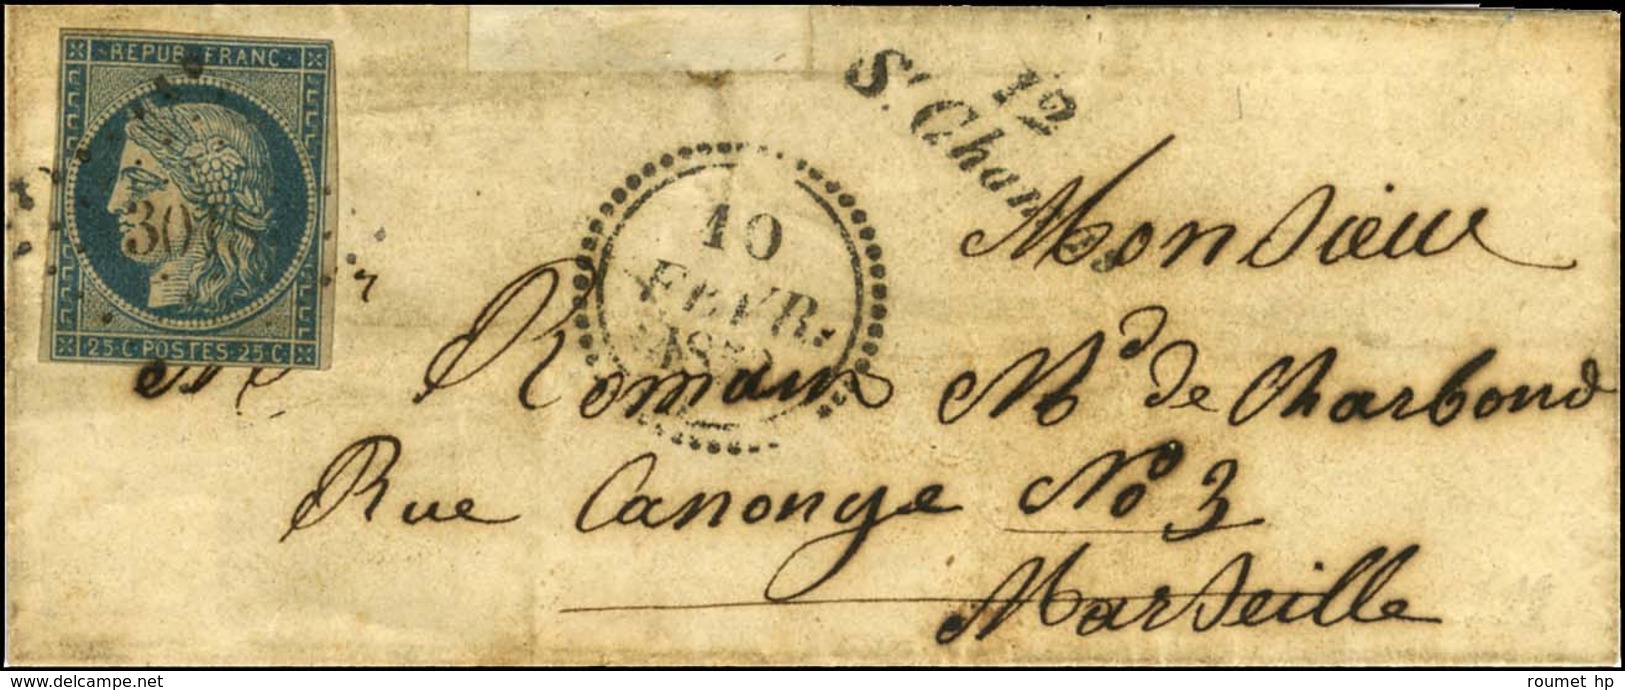 REPUB FRANC
30
25 C POSTES 25 C
12
St Cham
10
FEVR.
Monsieur
Mr Romain Md de Charbond
Rue Canonge No 3
Marseille
www.delcampe.net
roumet hp